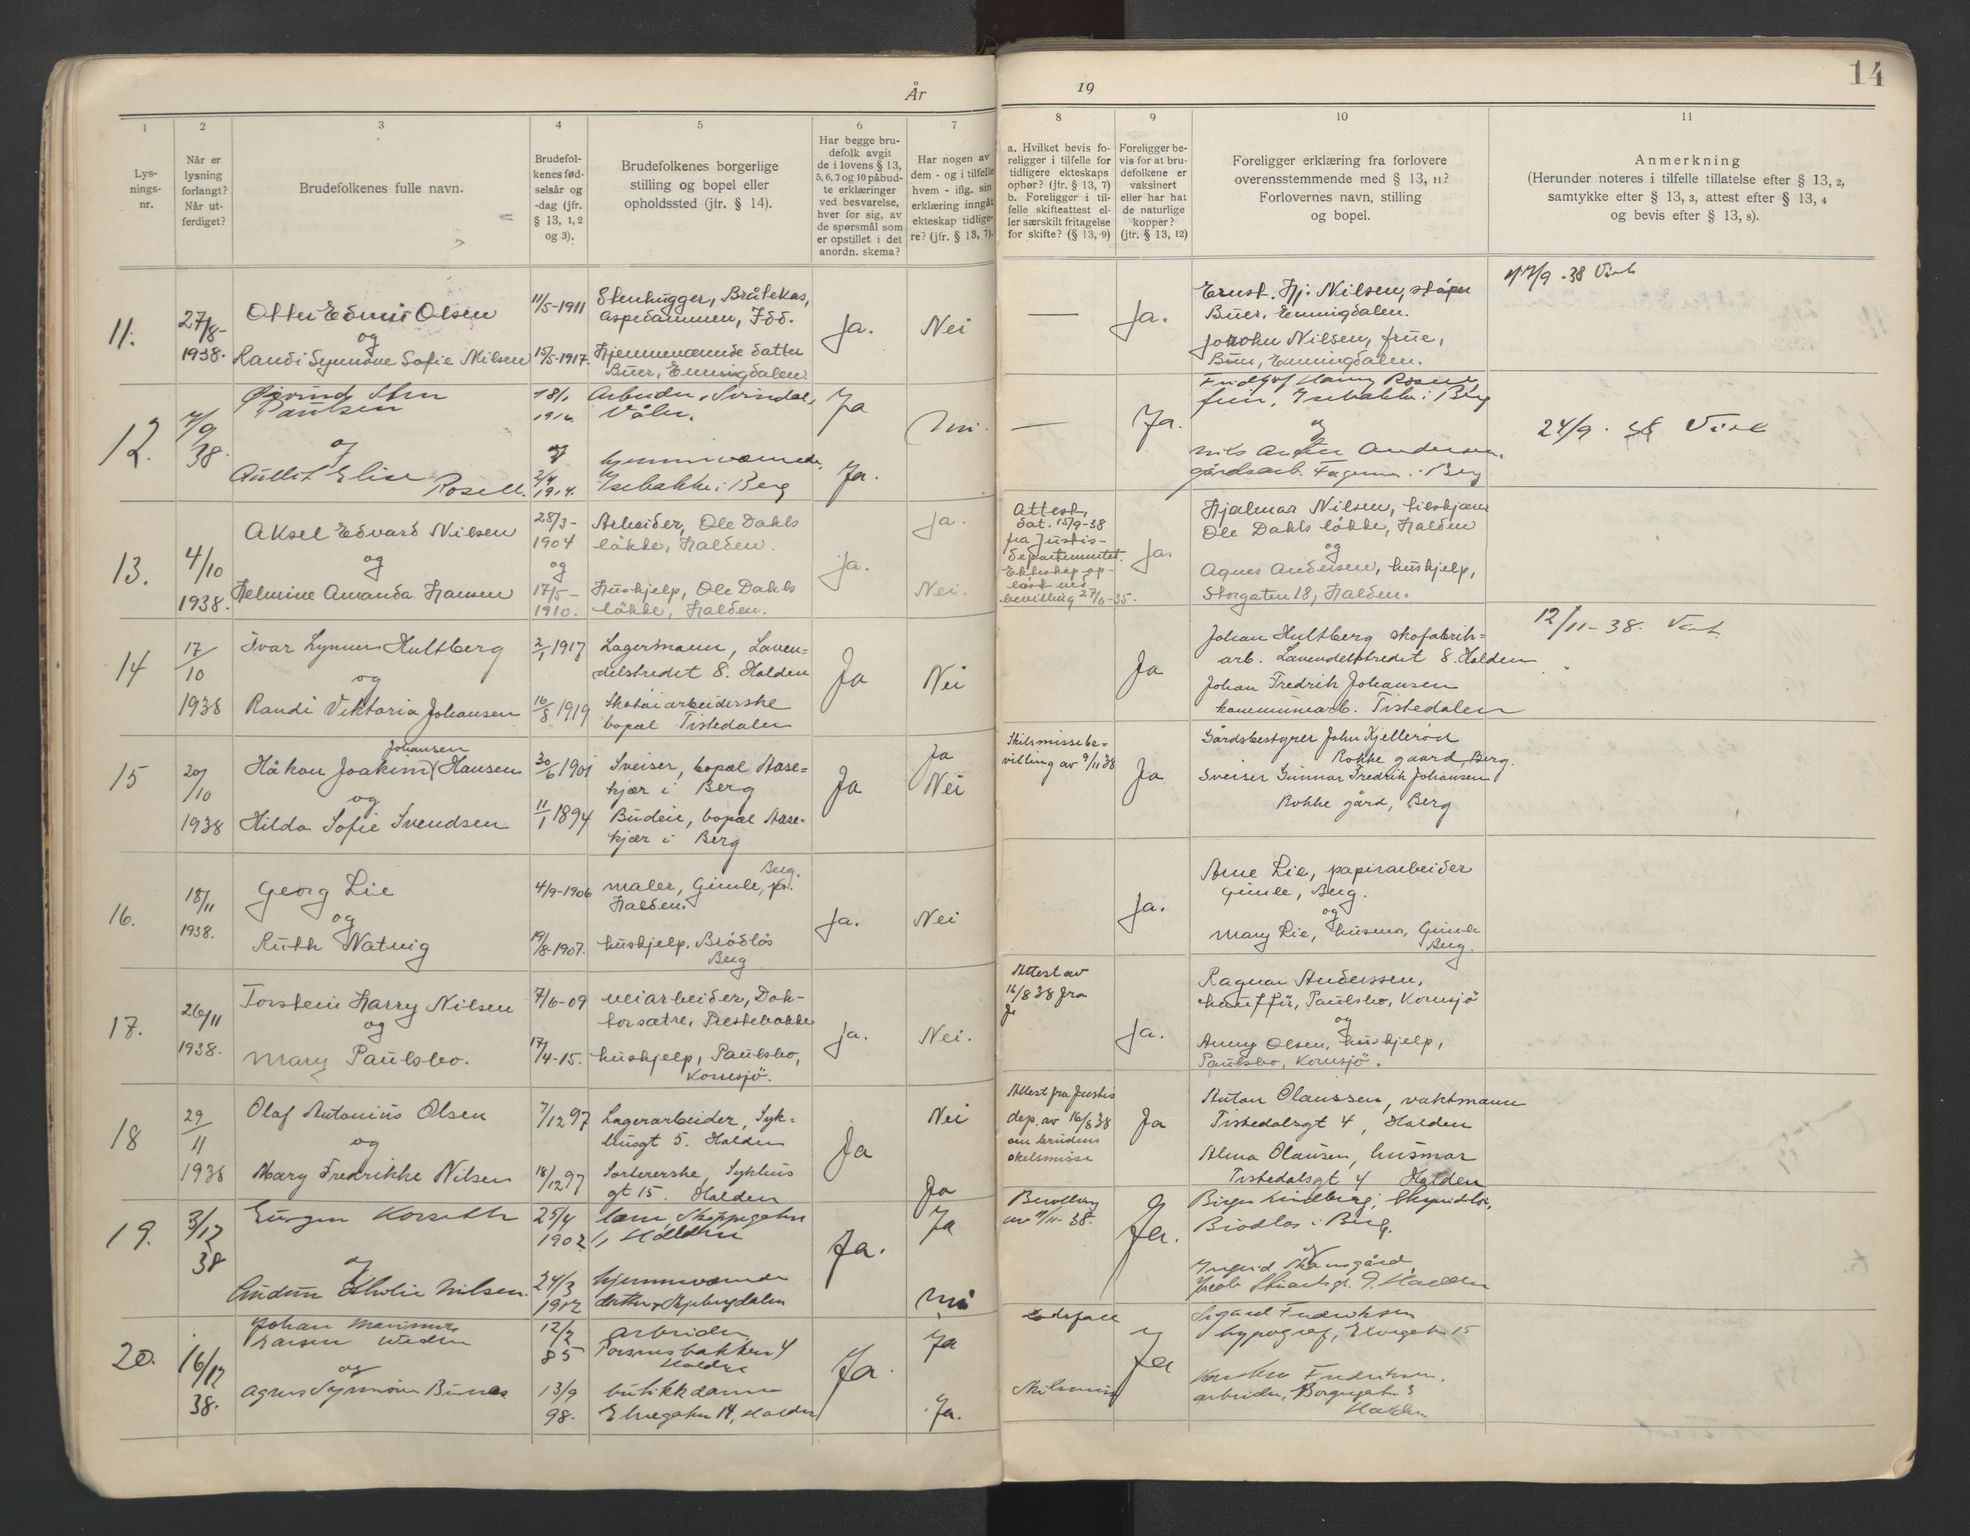 År
19
14
1
2
3
4
5
6
7
8
9
10
11
Lys-
nings-
nr.
Når er
lysning
forlangt?
Når ut-
ferdiget?
Brudefolkenes fulle navn.
Brudefol-
kenes fød-
selsår og
-dag (jfr.
§ 13, 1, 2
og 3).
Brudefolkenes borgerlige
stilling og bopel eller
opholdssted (jfr. § 14).
Har begge bru-
defolk avgit
de i lovens § 13,
5, 6, 7 og 10 påbud-
te erklæringer
ved besvarelse,
hver for sig, av
de spørsmål som
er opstillet i det
anordn. skema?
Har nogen av
dem - og i tilfelle
hvem - iflg. sin
erklæring inngått
ekteskap tidlige-
re? (jfr. § 13, 7).
a. Hvilket bevis fo-
religger i tilfelle for
tidligere ekteskaps
ophør? (jfr. § 13, 7)
b. Foreligger i til-
felle skifteattest el-
ler særskilt fritagelse
for skifte? (§ 13, 9)
Foreligger be-
vis for at bru-
defolkene er
vaksinert
eller har hat
de naturlige
kopper?
(jfr. § 13, 12)
Foreligger erklæring fra forlovere
overensstemmende med § 13, 11?
Forlovernes navn, stilling
og bopel.
Anmerkning
(Herunder noteres i tilfelle tillatelse efter § 13, 2,
samtykke efter § 13, 3, attest efter § 13, 4
og bevis efter § 13, 8).
11.
27/8-
1938.
Otter Edmir Olsen
og
Randi Synnöve Sofie Nilsen
11/5-1911
15/5-1917.
Stenhugger, Bråtekas,
Aspedammen, Idd.
Hjemmeværende datter
Buer, Enningdalen.
Ja.
Nei
—
Ja.
Ernst. Hj. Nilsen,
Buer, Enningdalen.
Nilsen, frue,
Buer, Enningdalen.
17/9 - 38
12.
7/9
38.
Øivind
Paulsen
og
Elise
Rosell.
18/1
1916.
og
2/4
1914.
Arbeider, Svindal,
Våler.
hjemmeværende,
Isebakke i Berg
Ja
Ja.
Nei.
—
Ja.
Isebakke i Berg
og
Nils Andersen,
gårdsarb. i Berg
24/9 - 38
13.
4/10
1938.
Aksel Edvard Nilsen
og
Helmine Amanda Hansen
28/3-
1904
og
17/5-
1910.
Arbeider, Ole Dahls
lökke, Halden.
Hushjelp, Ole Dahls
lökke, Halden.
Ja.
Ja.
Nei.
Attest,
dat. 15/9-38
fra Justis-
departementet.
Ekteskap op-
löst ved
bevilling 27/6-35.
Ja.
Hjalmar Nilsen,
Ole Dahls lökke, Halden
og
Agnes Andersen, hushjelp,
Storgaten 18, Halden.
14
17/10
1938
Ivar Lynner Hultberg
og
Randi Viktoria Johansen
2/1 1917
16/8 1919
Lagermann, Laven-
delstredet 8. Halden
Skotöiarbeiderske
bopal Tistedalen
Ja
Nei
Ja
Johan Hultberg skofabrik-
arb. Lavendelstredet 8. Halden
Johan Fredrik Johansen
kommunearb. Tistedalen
12/11-38.
15
20/10
1938
Johansen
Håkon Joakim Hansen
og
Hilda Sofie Svendsen
30/6 1901
11/1 1894
Sveiser, bopæl Aase-
kjær i Berg
Budeie, bopæl Aase-
kjær i Berg
Ja
Ja
Nei
Skilsmissebe-
villing av 9/11 38
Ja
Gårdsbestyrer John Kjellerød
Rokke gaard, Berg.
Sveiser Gunnar Fredrik Johansen
Rokke gård, Berg
16.
18/11
1938.
Georg Lie
og
Ruth Natvig
4/9-1906
19/8-1907.
Berg.
maler, Gimle, pr.
Halden.
hushjelp, Brödlös
Berg
Ja.
Nei
Ja.
Arne Lie, papirarbeider
Gimle, Berg.
og
Mary Lie, husmor, Gimle
Berg.
17.
26/11
1938.
Torstein Harry Nilsen
og
Mary Paulsbo.
7/6-09
17/4-15.
veiarbeider, Dok-
torsætre, Prestebakke
hushjelp, Paulsbo,
Kornsjö.
Ja.
Nei.
Attest av
16/8 38 fra
Ja.
Ragnar Anderssen,
Paulsbo, Kornsjö
og
Anny Olsen, hushjelp,
Paulsbo, Kornsjö.
18
29/11
1938
Olaf Antonius Olsen
og
Mary Fredrikke Nilsen
7/12 97
18/12 97
Lagerarbeider, Syk-
husgt 5. Halden
Sortererske, Sykhus
gt 15. Halden
Ja
Nei
Ja
Attest fra Justis
dep. av 16/8 38
om brudens
skilsmisse
Ja
Anton Olaussen, vaktmann
Tistedalsgt 4, Halden
Alma Olausen, husmor
Tistedalsgt 4 Halden
19.
3/12
38
Korseth
og
Nilsen.
25/4
1902
24/3
1912
Halden
hjemmeværende
datter,
Ja.
Ja
Nei
Bevilling
av 4/11-38.
Ja.
Birger Lindberg,
Brödlös i Berg.
og
Ingrid
Halden
20.
16/12
38.
Johan Marinius
Larsen
og
Agnes Synnöve
12/2
85
13/9
98.
arbeider
Halden
butikkdame
Elvegaten 14, Halden
Ja.
Ja
Ja.
Dødsfall
Skilsmisse
Ja
Sigurd Fredriksen
typograf, Elvegaten 15
Fredriksen.
arbeider, Borgergaten 3
Halden